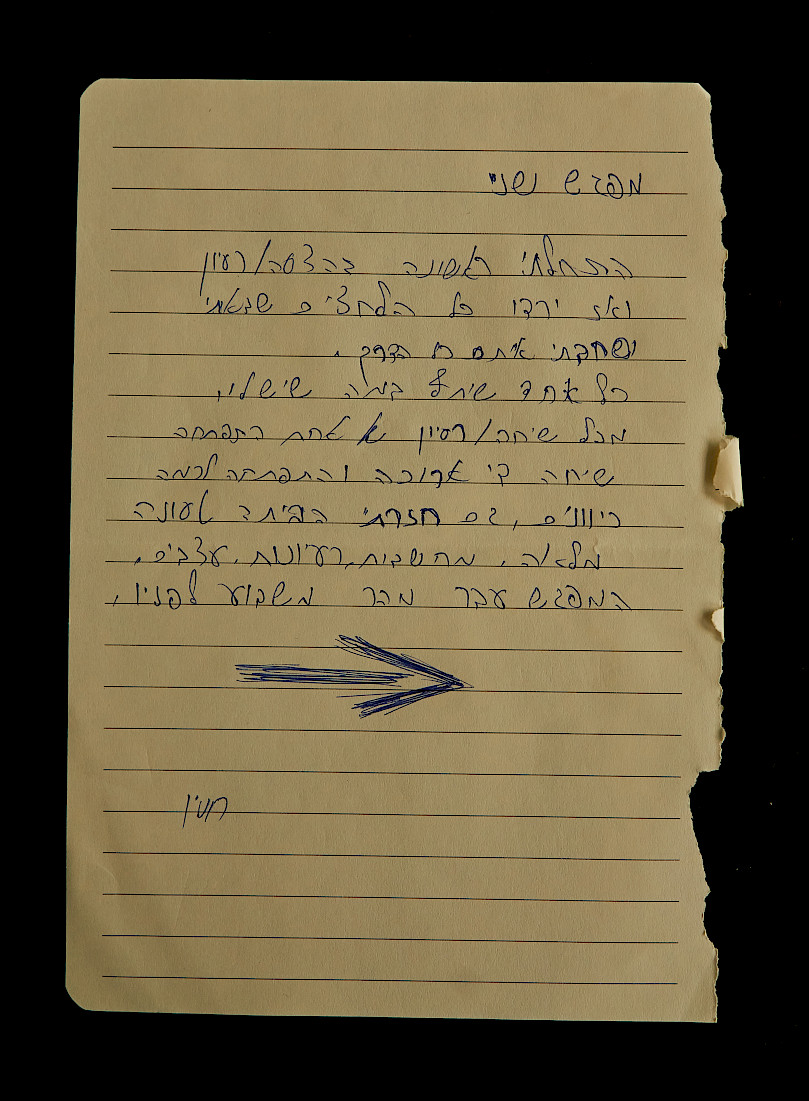 מפגש שני
התחלתי ראשונה בהצסה/רעיון
ואז ירדו כל הלחצים שבאתי
וסחבתי איתם כל הדרך.
כל אחד שיתף במה שיש לו,
מכל שיחה/רעיון של אחת התפתחה
שיחה די ארוכה והתפתחה לכמה
כיוונים, גם חזרתי הביתה טעונה
מלאה, מחשבות, רעיונות, עצבים,
המפגש עבר מהר משבוע לפניו,